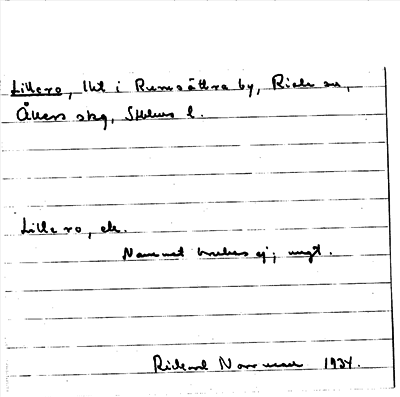 Lillero, lht i Rumsättra by, Riala sn,
Åkers skg, Sthlms l.
Lillero, ek.
Namnet brukas ej; ungt.
Rickard 1934.